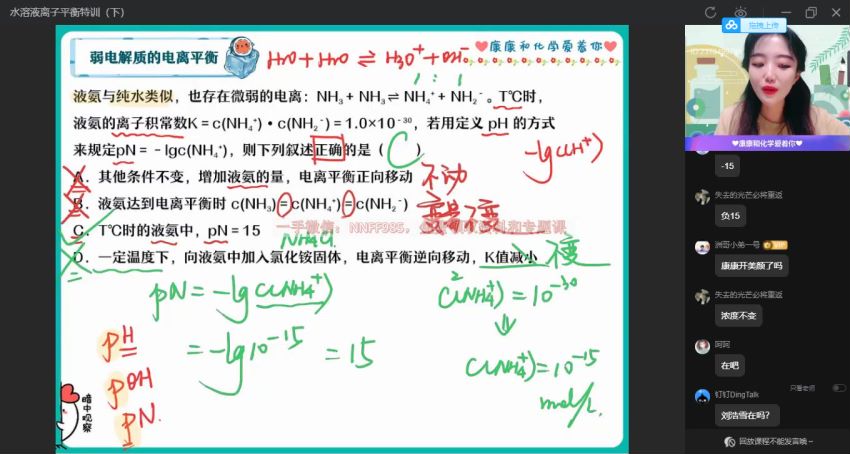 水溶液离子平衡特训（下）
拖拽上传
弱电解质的电离平衡
H₂O + H₂O ⇌ H₃O⁺ + OH⁻
❤康康和化学爱着你❤
1 : 1
液氨与纯水类似，也存在微弱的电离：NH₃ + NH₃ ⇌ NH₄⁺ + NH₂⁻ 。T℃时，
液氨的离子积常数K = c(NH₄⁺)·c(NH₂⁻) = 1.0×10⁻³⁰，若用定义 pH 的方式
来规定pN = －lgc(NH₄⁺)，则下列叙述正确的是（ C ）
-lgc(H⁺)
A．其他条件不变，增加液氨的量，电离平衡正向移动 不动
B．液氨达到电离平衡时 c(NH₃) = c(NH₄⁺) = c(NH₂⁻)
C．T℃时的液氨中，pN = 15
NH₄Cl
D．一定温度下，向液氨中加入氯化铵固体，电离平衡逆向移动，K值减小 不变
pN = -lg c(NH₄⁺)
= -lg10⁻¹⁵ = 15
c²(NH₄⁺) = 10⁻³⁰
⇓
c(NH₄⁺) = 10⁻¹⁵
mol/L
pH
pOH
pN
暗中观察
❤康康和化学爱着你❤
-15
失去的光芒必将重返
负15
洲哥小弟一号
康康开美颜了吗
失去的光芒必将重返
浓度不变
阿阿
在吧
只看老师
钉钉DingTalk
刘浩雪在吗？
回放课程不能发言噢～